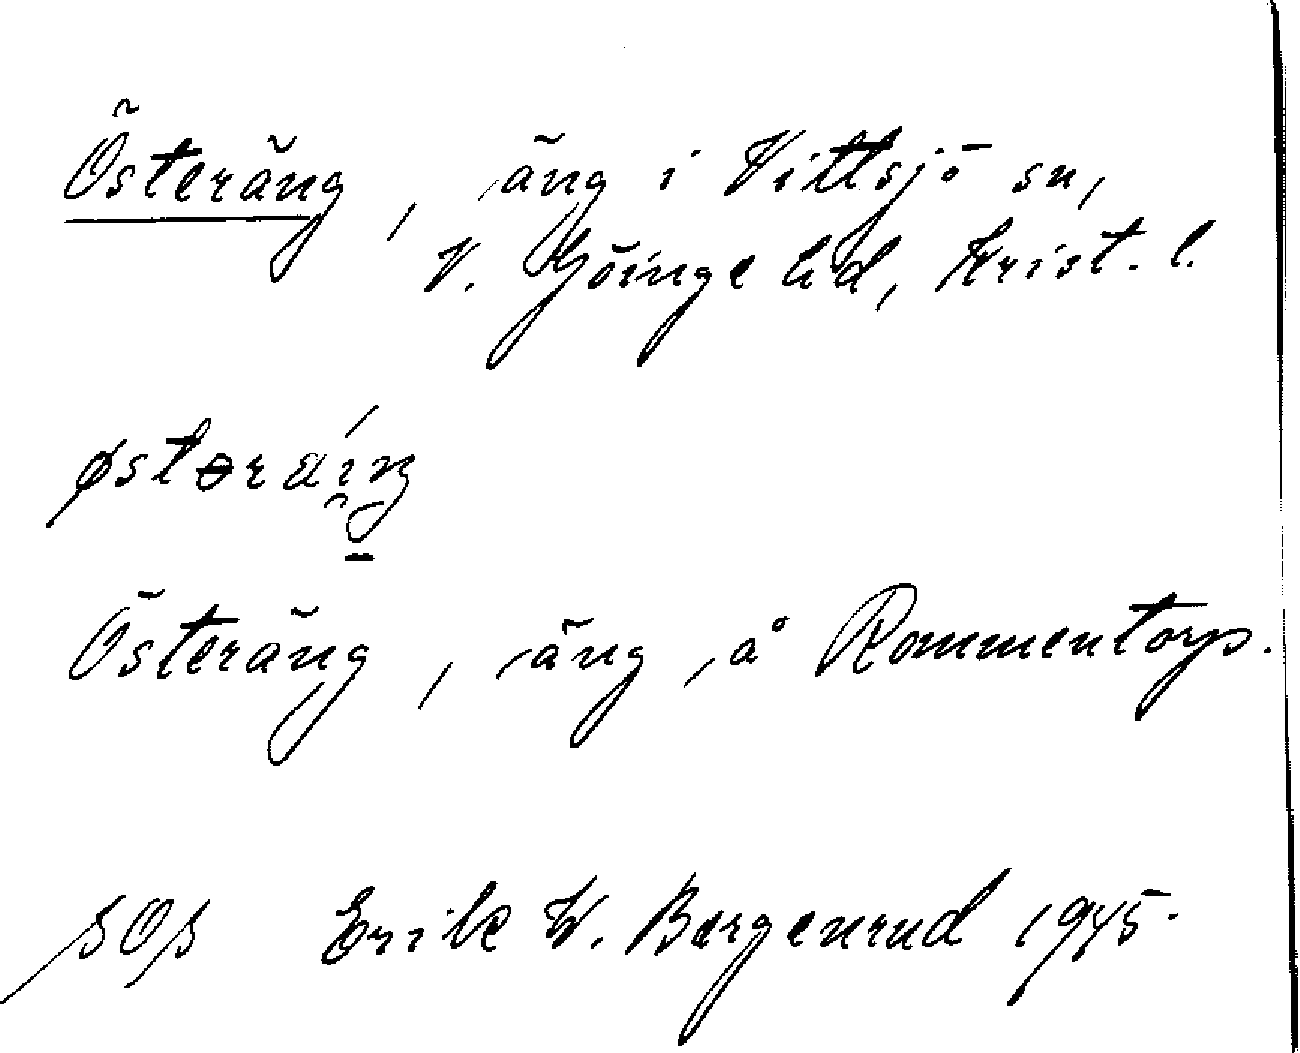 Österäng, äng i Vittsjö sn,
V. Göinge hd, Krist. l.
østəraíŋ
Österäng, äng å Rommentorp.
SOS Erik W. Bergenrud 1945.